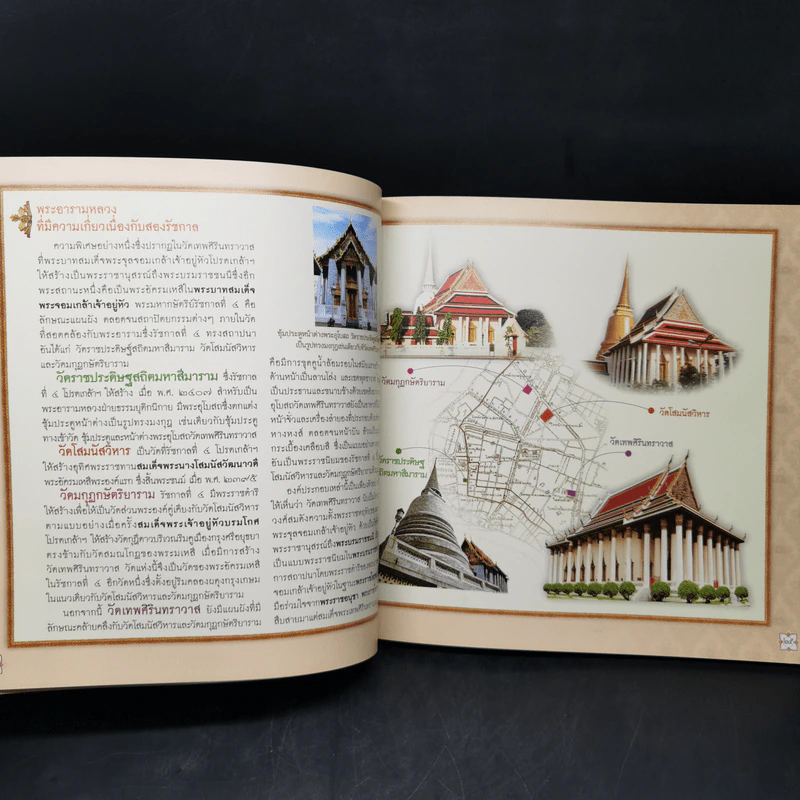 พระอารามหลวง
ที่มีความเกี่ยวเนื่องกับสองรัชกาล
ความพิเศษอย่างหนึ่งซึ่งปรากฏในวัดเทพศิรินทราวาส
ที่พระบาทสมเด็จพระจุลจอมเกล้าเจ้าอยู่หัวโปรดเกล้าฯ
ให้สร้างเป็นพระราชานุสรณ์ถึงพระบรมราชชนนีซึ่งอีก
พระสถานะหนึ่งคือเป็นพระอัครมเหสีในพระบาทสมเด็จ
พระจอมเกล้าเจ้าอยู่หัว พระมหากษัตริย์รัชกาลที่ ๔ คือ
ลักษณะแผนผัง ตลอดจนสถาปัตยกรรมต่างๆ ภายในวัด
ที่สอดคล้องกับพระอารามซึ่งรัชกาลที่ ๔ ทรงสถาปนา
อันได้แก่ วัดราชประดิษฐ์สถิตมหาสีมาราม วัดโสมนัสวิหาร
และวัดมกุฏกษัตริยาราม
วัดราชประดิษฐสถิตมหาสีมาราม ซึ่งรัชกาล
ที่ ๔ โปรดเกล้าฯ ให้สร้าง เมื่อ พ.ศ. ๒๔๐๗ สำหรับเป็น
พระอารามหลวงฝ่ายธรรมยุติกนิกาย มีพระอุโบสถซึ่งตกแต่ง
ซุ้มประตูหน้าต่างเป็นรูปทรงมงกุฎ เช่นเดียวกับซุ้มประตู
ทางเข้าวัด ซุ้มประตูและหน้าต่างพระอุโบสถวัดเทพศิรินทราวาส
วัดโสมนัสวิหาร เป็นวัดที่รัชกาลที่ ๔ โปรดเกล้าฯ
ให้สร้างอุทิศพระราชทานสมเด็จพระนางโสมนัสวัฒนาวดี
พระอัครมเหสีพระองค์แรก ซึ่งสิ้นพระชนม์ เมื่อ พ.ศ. ๒๓๙๕
วัดมกุฏกษัตริยาราม รัชกาลที่ ๔ มีพระราชดำริ
ให้สร้างเพื่อให้เป็นวัดส่วนพระองค์คู่เคียงกับวัดโสมนัสวิหาร
ตามแบบอย่างเมื่อครั้งสมเด็จพระเจ้าอยู่หัวบรมโกศ
โปรดเกล้าฯ ให้สร้างวัดกุฎีดาวบริเวณริมคูเมืองกรุงศรีอยุธยา
ตรงข้ามกับวัดสมณโกฏของพระมเหสี เมื่อมีการสร้าง
วัดเทพศิรินทราวาส วัดแห่งนี้จึงเป็นวัดของพระอัครมเหสี
ในรัชกาลที่ ๔ อีกวัดหนึ่งซึ่งตั้งอยู่ริมคลองผดุงกรุงเกษม
ในแนวเดียวกับวัดโสมนัสวิหารและวัดมกุฏกษัตริยาราม
นอกจากนี้ วัดเทพศิรินทราวาส ยังมีแผนผังที่มี
ลักษณะคล้ายคลึงกับวัดโสมนัสวิหารและวัดมกุฏกษัตริยาราม
ซุ้มประตูหน้าต่างพระอุโบสถ
เป็นรูปทรงมงกุฎเช่นเดียวกับ
คือมีการขุดคูน้ำล้อมรอบ
ด้านหน้าเป็นลานโล่ง
เป็นประธานและขนาบข้างด้วย
อุโบสถวัดเทพศิรินทราวาส
หน้าจั่วและเครื่องลำยอง
หางหงส์ ตลอดจนหน้าบัน
กระเบื้องเคลือบสี
อันเป็นพระราชนิยมของรัชกาล
โสมนัสวิหารและวัดมกุฏกษัตริยาราม
องค์ประกอบเหล่านี้
ให้เห็นว่า วัดเทพศิรินทราวาส
พระจอมเกล้าเจ้าอยู่หัว
พระราชานุสรณ์ถึงพระบรมราชชนนี
เป็นแบบพระราชนิยมใน
การสถาปนาโดยพระราชดำริของ
เกล้าเจ้าอยู่หัวในฐานะ
มีอร่วมใจจากพระราชอนุชา
สืบสายมาแต่สมเด็จพระเทพศิรินทรา
วัดมกุฏกษัตริยาราม
วัดโสมนัสวิหาร
วัดเทพศิรินทราวาส
วัดราชประดิษฐ
สถิตมหาสีมาราม